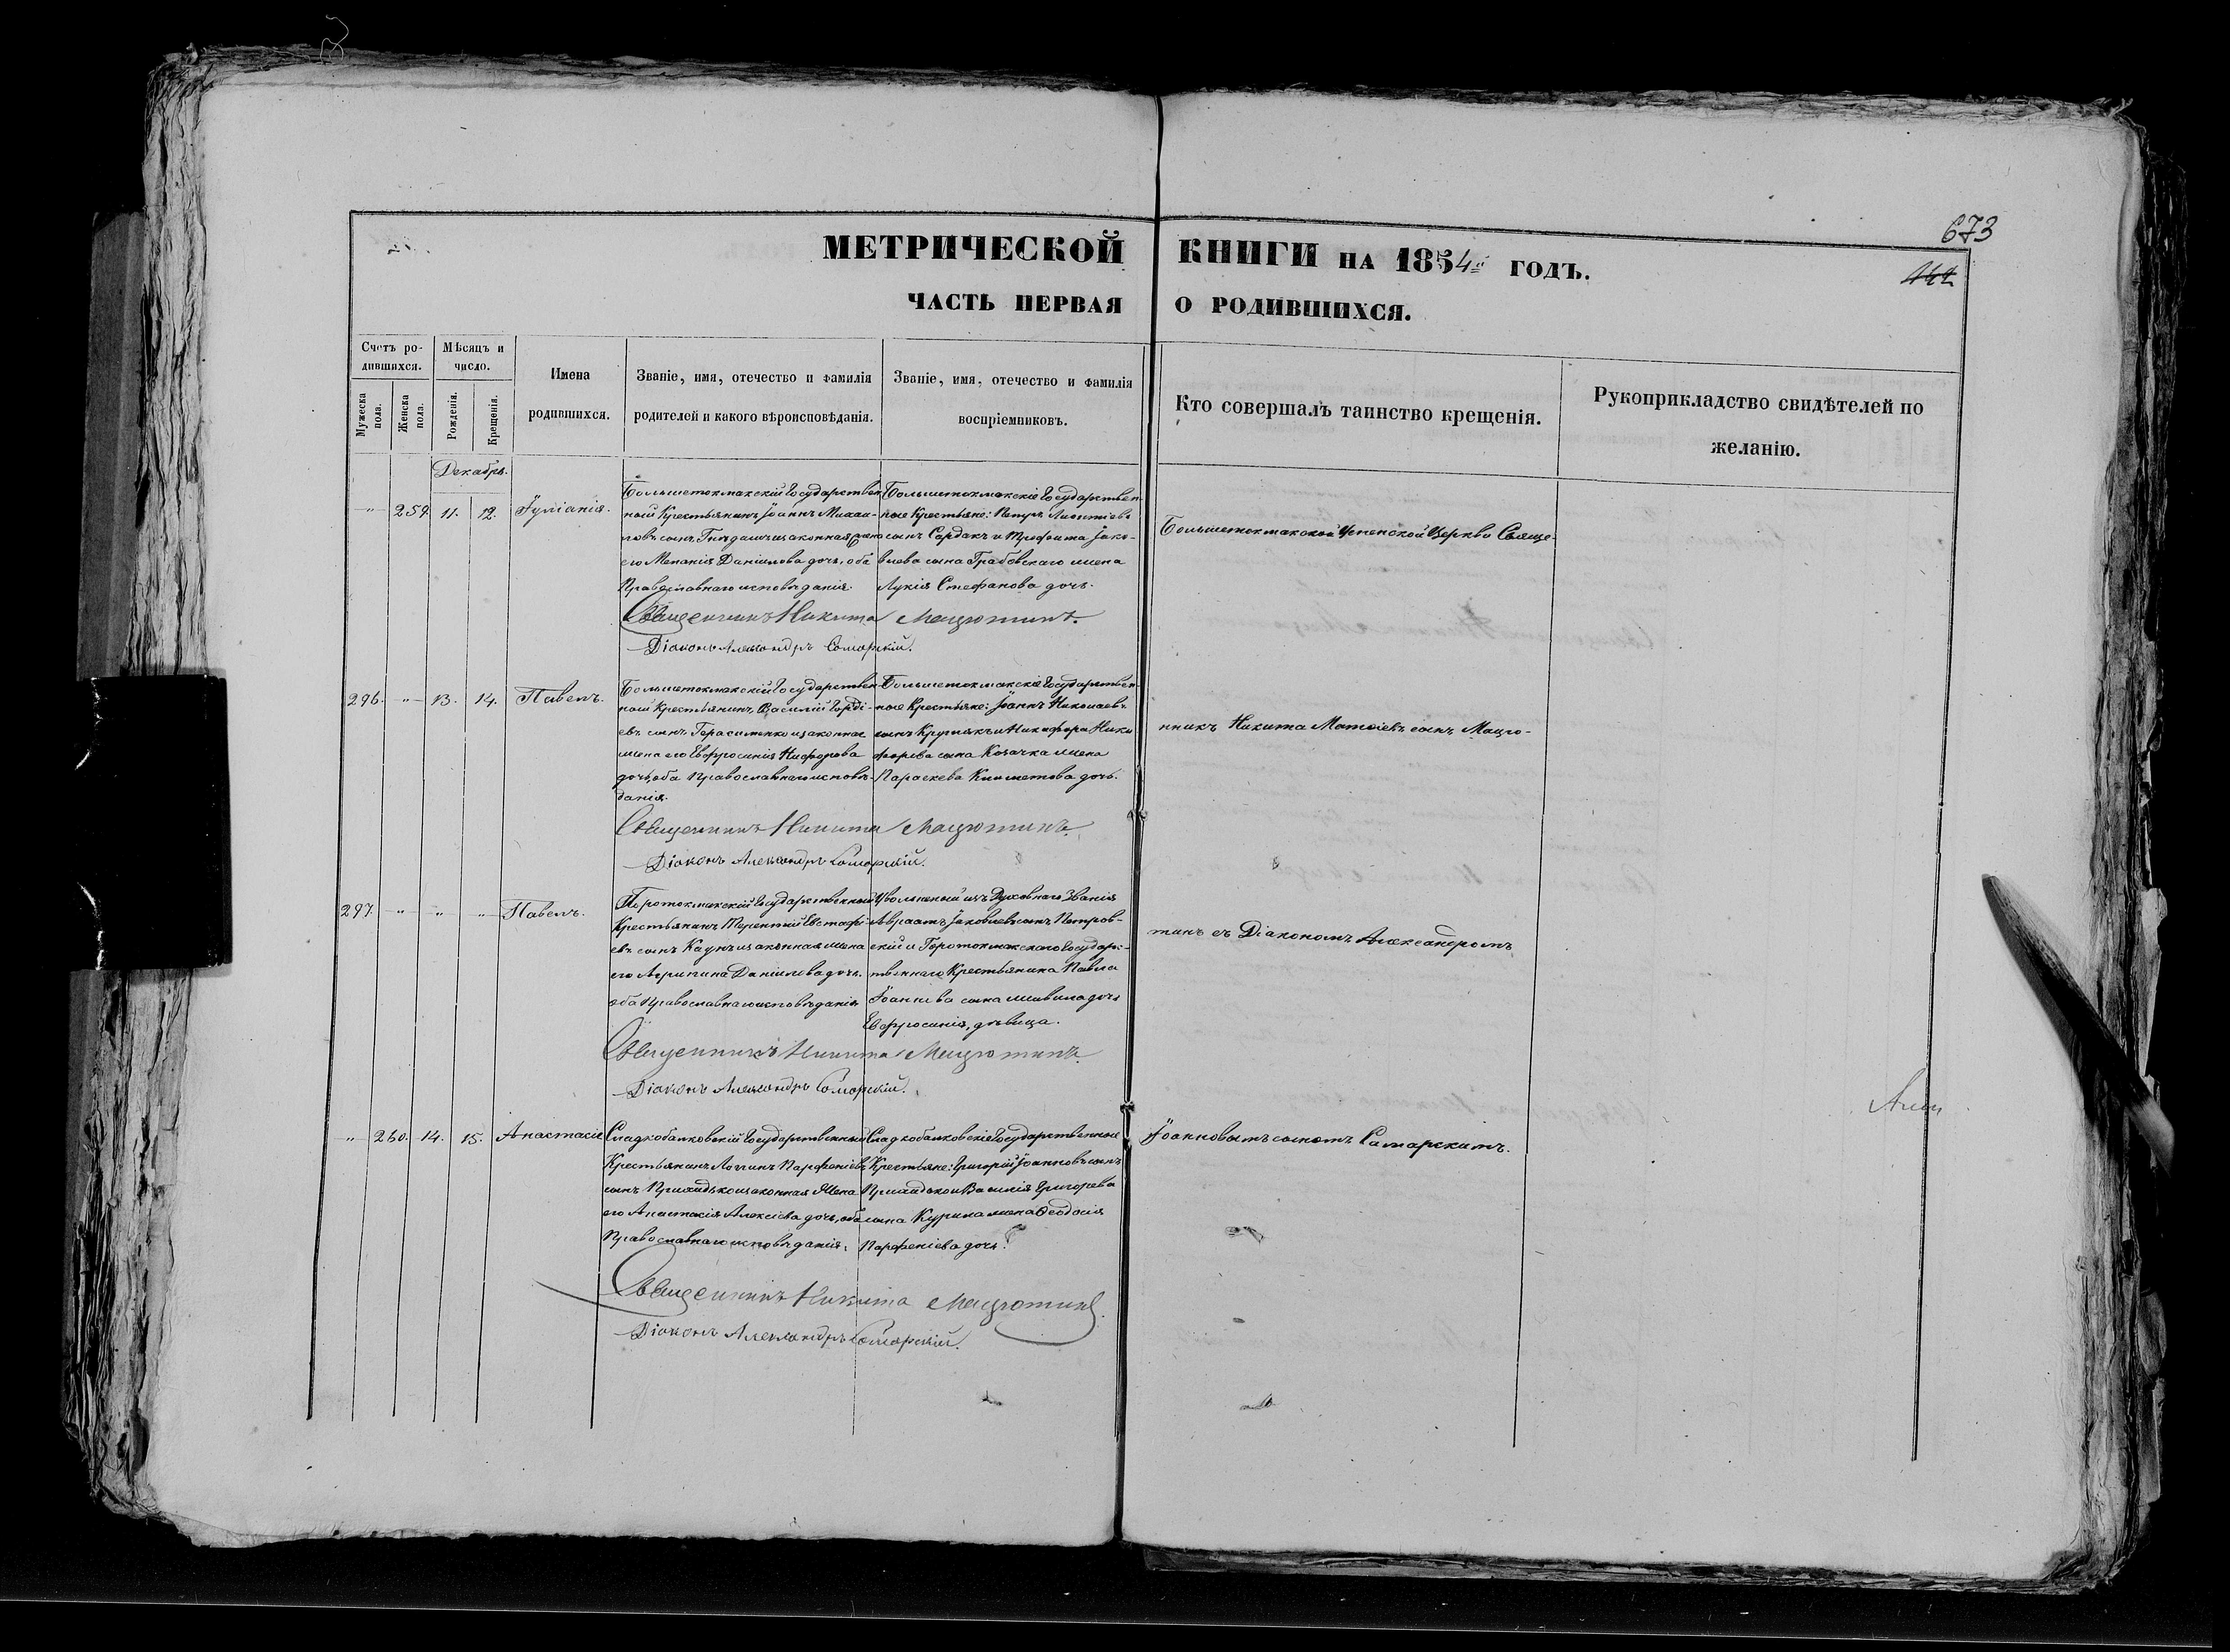 673
МЕТРИЧЕСКОЙ КНИГИ НА 1854й ГОДЪ.
ЧАСТЬ ПЕРВАЯ О РОДИВШИХСЯ.
Счетъ родившихся.
Мужеска пола.
Женска пола.
Мѣсяцъ и число.
Рожденія.
Крещенія.
Имена
родившихся.
Званіе, имя, отечество и фамилія
родителей и какого вѣроисповѣданія.
Званіе, имя, отечество и фамилія
воспріемниковъ.
Кто совершалъ таинство крещенія.
Рукоприкладство свидѣтелей по
желанію.
Декабрь.
" 259. 11. 12. Іуліанія.
Большетокмакскій Государствен
ный Крестьянинъ Іоаннъ Михаи-
ловъ сынъ законная жена
его Меланія Даніилова дочь, оба
Православнаго исповѣданія.
Большетокмакскіе Государствен-
ные Крестьяне: Петръ Леонтіевъ
сынъ Сардакъ и Трофима Іако-
влева сына Грабовскаго жена
Лукія Стефанова дочь.
Священникъ Никита Мацютинъ.
Діаконъ Александръ Самарскій.
296. " 13. 14. Павелъ.
Большетокмакскій Государствен
ный Крестьянинъ Василій Горді-
евъ сынъ Герасименко и законная
жена его Евфросинія Никифорова
дочь, оба Православнаго исповѣ-
данія.
Большетокмакскіе Государствен-
ные Крестьяне: Іоаннъ Николаевъ
сынъ Круглякъ и Никифора Ники
форова сына Козачка жена
Параскева Климентова дочь.
Священникъ Никита Мацютинъ.
Діаконъ Александръ Самарскій.
297. " " " Павелъ.
Государственный
Крестьянинъ Терентій Евстафі-
евъ сынъ Каунъ и законная жена
его Агрипина Даніилова дочь.
оба Православнаго исповѣданія
Уволенный изъ Духовнаго Званія
Авраамъ Іаковлевъ сынъ Петров-
скій и Государс-
твеннаго Крестьянина Павла
Іоаннова сына дочь
Евфросинія, дѣвица.
Священникъ Никита Мацютинъ.
Діаконъ Александръ Самарскій.
" 260. 14. 15. Анастасія
Сладкобалковскій Государственный
Крестьянинъ Логгинъ Парфеніевъ
сынъ Приходько и законная Жена
его Анастасія Алексіева дочь, оба
Православнаго исповѣданія.
Сладкобалковскіе Государственные
Крестьяне: Григорій Іоанновъ сынъ
Приходько и Василія Григорева
сына Курила жена Ѳеодосія
Парфеніева дочь.
Священникъ Никита Мацютинъ.
Діаконъ Александръ Самарскій.
Большетокмакской Успенской Церкви Свяще-
нникъ Никита Матѳіевъ сынъ Мацю-
тинъ съ Діакономъ Александромъ
Іоанновымъ сыномъ Самарскимъ.